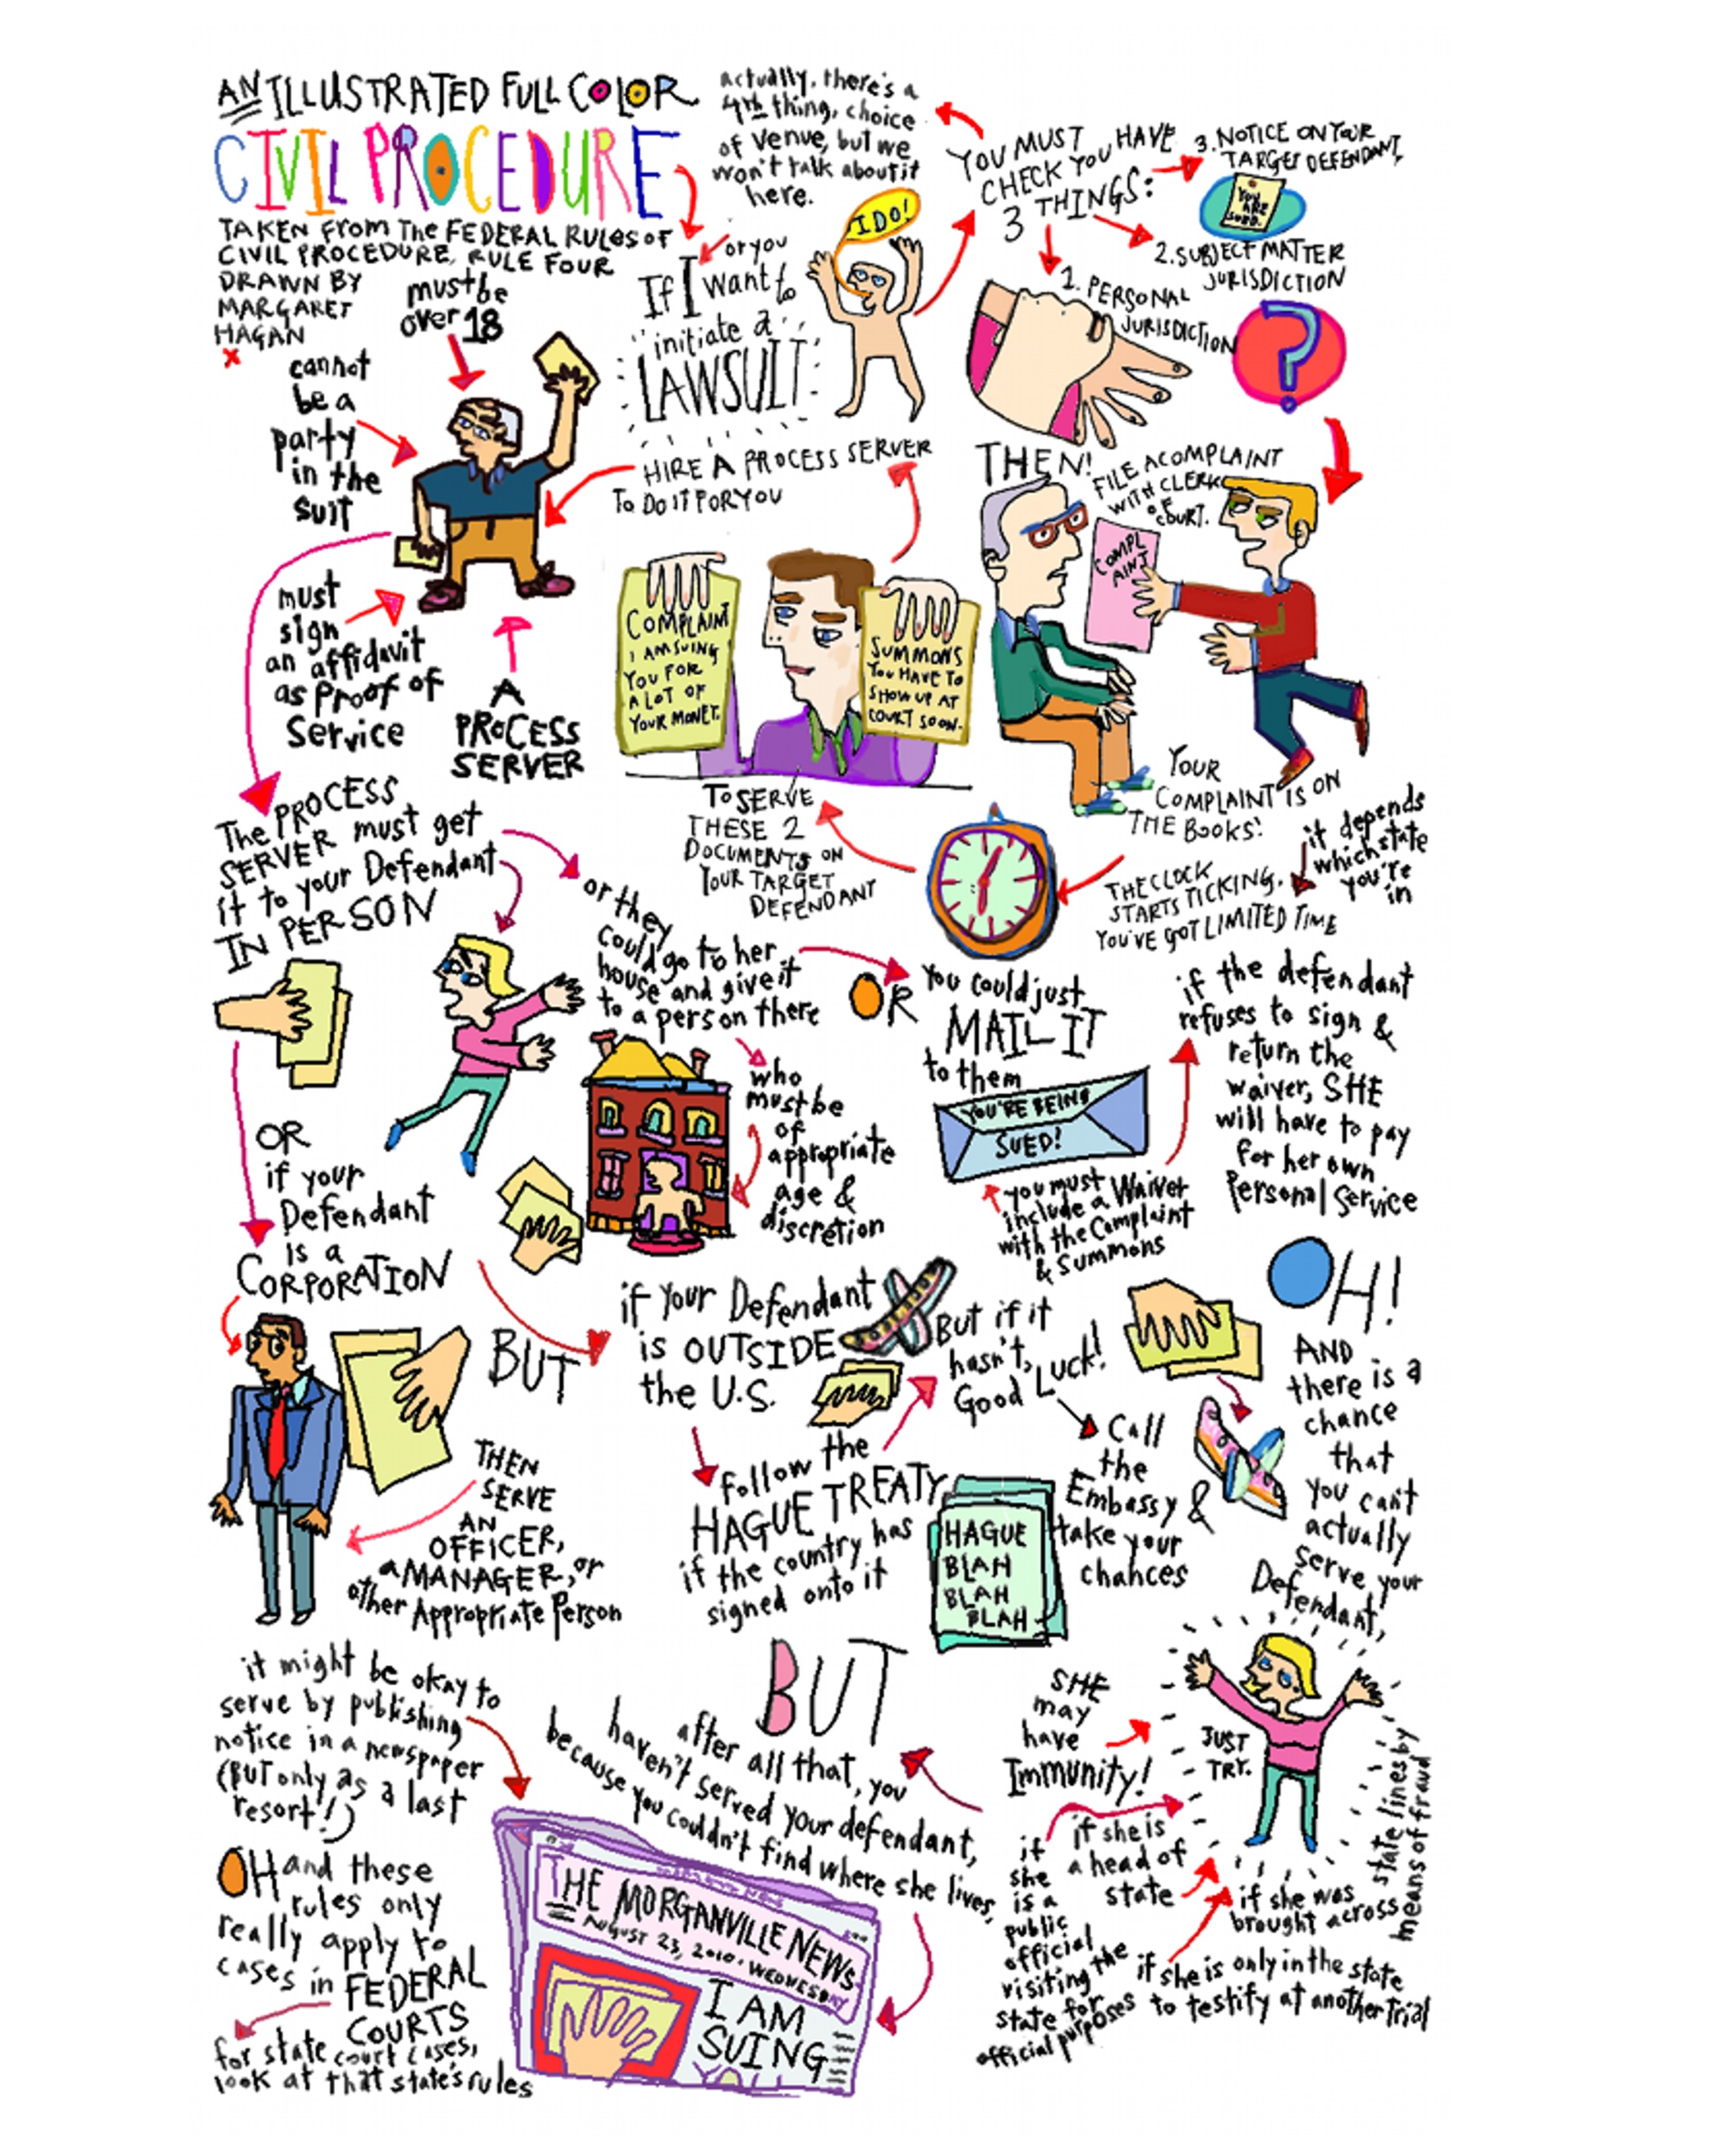 AN ILLUSTRATED FULL COLOR
CIVIL PROCEDURE
TAKEN FROM The FEDERAL RULES OF
CIVIL PROCEDURE, RULE FOUR
DRAWN BY
MARGARET
HAGAN
x
If I want to
or you
initiate a
LAWSUIT
I DO!
YOU MUST HAVE
CHECK YOU
3 THINGS:
actually, there's a
4th thing, choice
of Venue, but we
won't talk about it
here.
1. PERSONAL
JURISDICTION
2. SUBJECT MATTER
JURISDICTION
?
3. NOTICE ON YOUR
TARGET DEFENDANT
YOU
ARE
SUED.
THEN!
FILE A COMPLAINT
WITH CLERK
OF
COURT.
COMPL
AINT
YOUR
COMPLAINT IS ON
THE BOOKS!
THE CLOCK
STARTS TICKING.
YOU'VE GOT LIMITED TIME
it depends
which state
you're
in
TO SERVE
THESE 2
DOCUMENTS ON
YOUR TARGET
DEFENDANT
COMPLAINT
I AM SUING
YOU FOR
A LOT OF
YOUR MONEY.
SUMMONS
YOU HAVE TO
SHOW UP AT
COURT SOON.
HIRE A PROCESS SERVER
TO DO IT FOR YOU
must be
over 18
cannot
be a
party
in the
suit
must
sign
an affidavit
as proof of
Service
A
PROCESS
SERVER
The PROCESS
SERVER must get
it to your Defendant
IN PERSON
or they
could go to her
house and give it
to a person there
who
must be
of
appropriate
age &
discretion
OR
You could just
MAIL IT
to them
YOU'RE BEING
SUED!
you must
include a Waiver
with the Complaint
& Summons
if the defendant
refuses to sign &
return the
waiver, SHE
will have to pay
for her own
Personal Service
OR
if your
Defendant
is a
CORPORATION
THEN
SERVE
AN
OFFICER,
a MANAGER, or
other Appropriate Person
BUT
if your Defendant
is OUTSIDE
the U.S.
follow the
HAGUE TREATY
if the country has
signed onto it
HAGUE
BLAH
BLAH
BLAH
But if it
hasn't,
Good Luck!
Call
the
Embassy &
take your
chances
OH!
AND
there is a
chance
that
you can't
actually
serve your
Defendant,
JUST
TRY.
SHE
may
have
Immunity!
if
she
is a
public
official
visiting the
state for
official purposes
if she is
a head of
state
if she was
brought across
state lines by
means of fraud
if she is only in the state
to testify at another trial
BUT
after all that, you
haven't served your defendant,
because you couldn't find where she lives,
it might be okay to
serve by publishing
notice in a newspaper
(BUT only as a last
resort!)
THE MORGANVILLE NEWS
AUGUST 23, 2010. WEDNESDAY
I AM
SUING
OH and these
rules only
really apply to
cases in FEDERAL
COURTS
for state court cases,
look at that state's rules